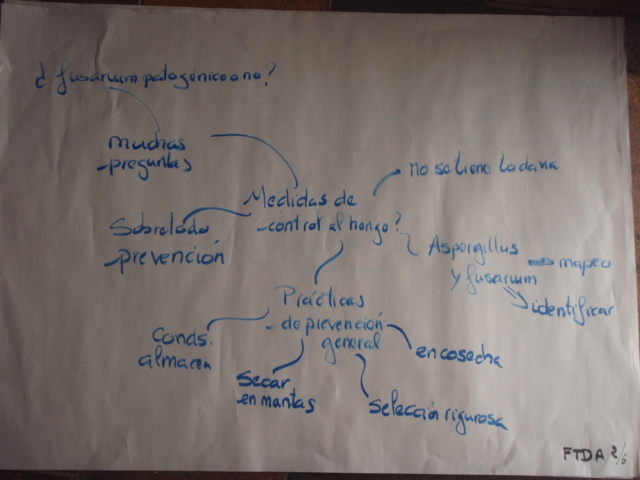 ¿fusarium patogénico o no?
muchas
preguntas
no se tiene todavía
Medidas de
control al hongo?
Sobretodo
prevención
Aspergillus
y fusarium
mapeo
identificar
Prácticas
de prevención
general
Conds.
almacen
en cosecha
secar
en mantas
selección rigurosa
FTDA 2/6